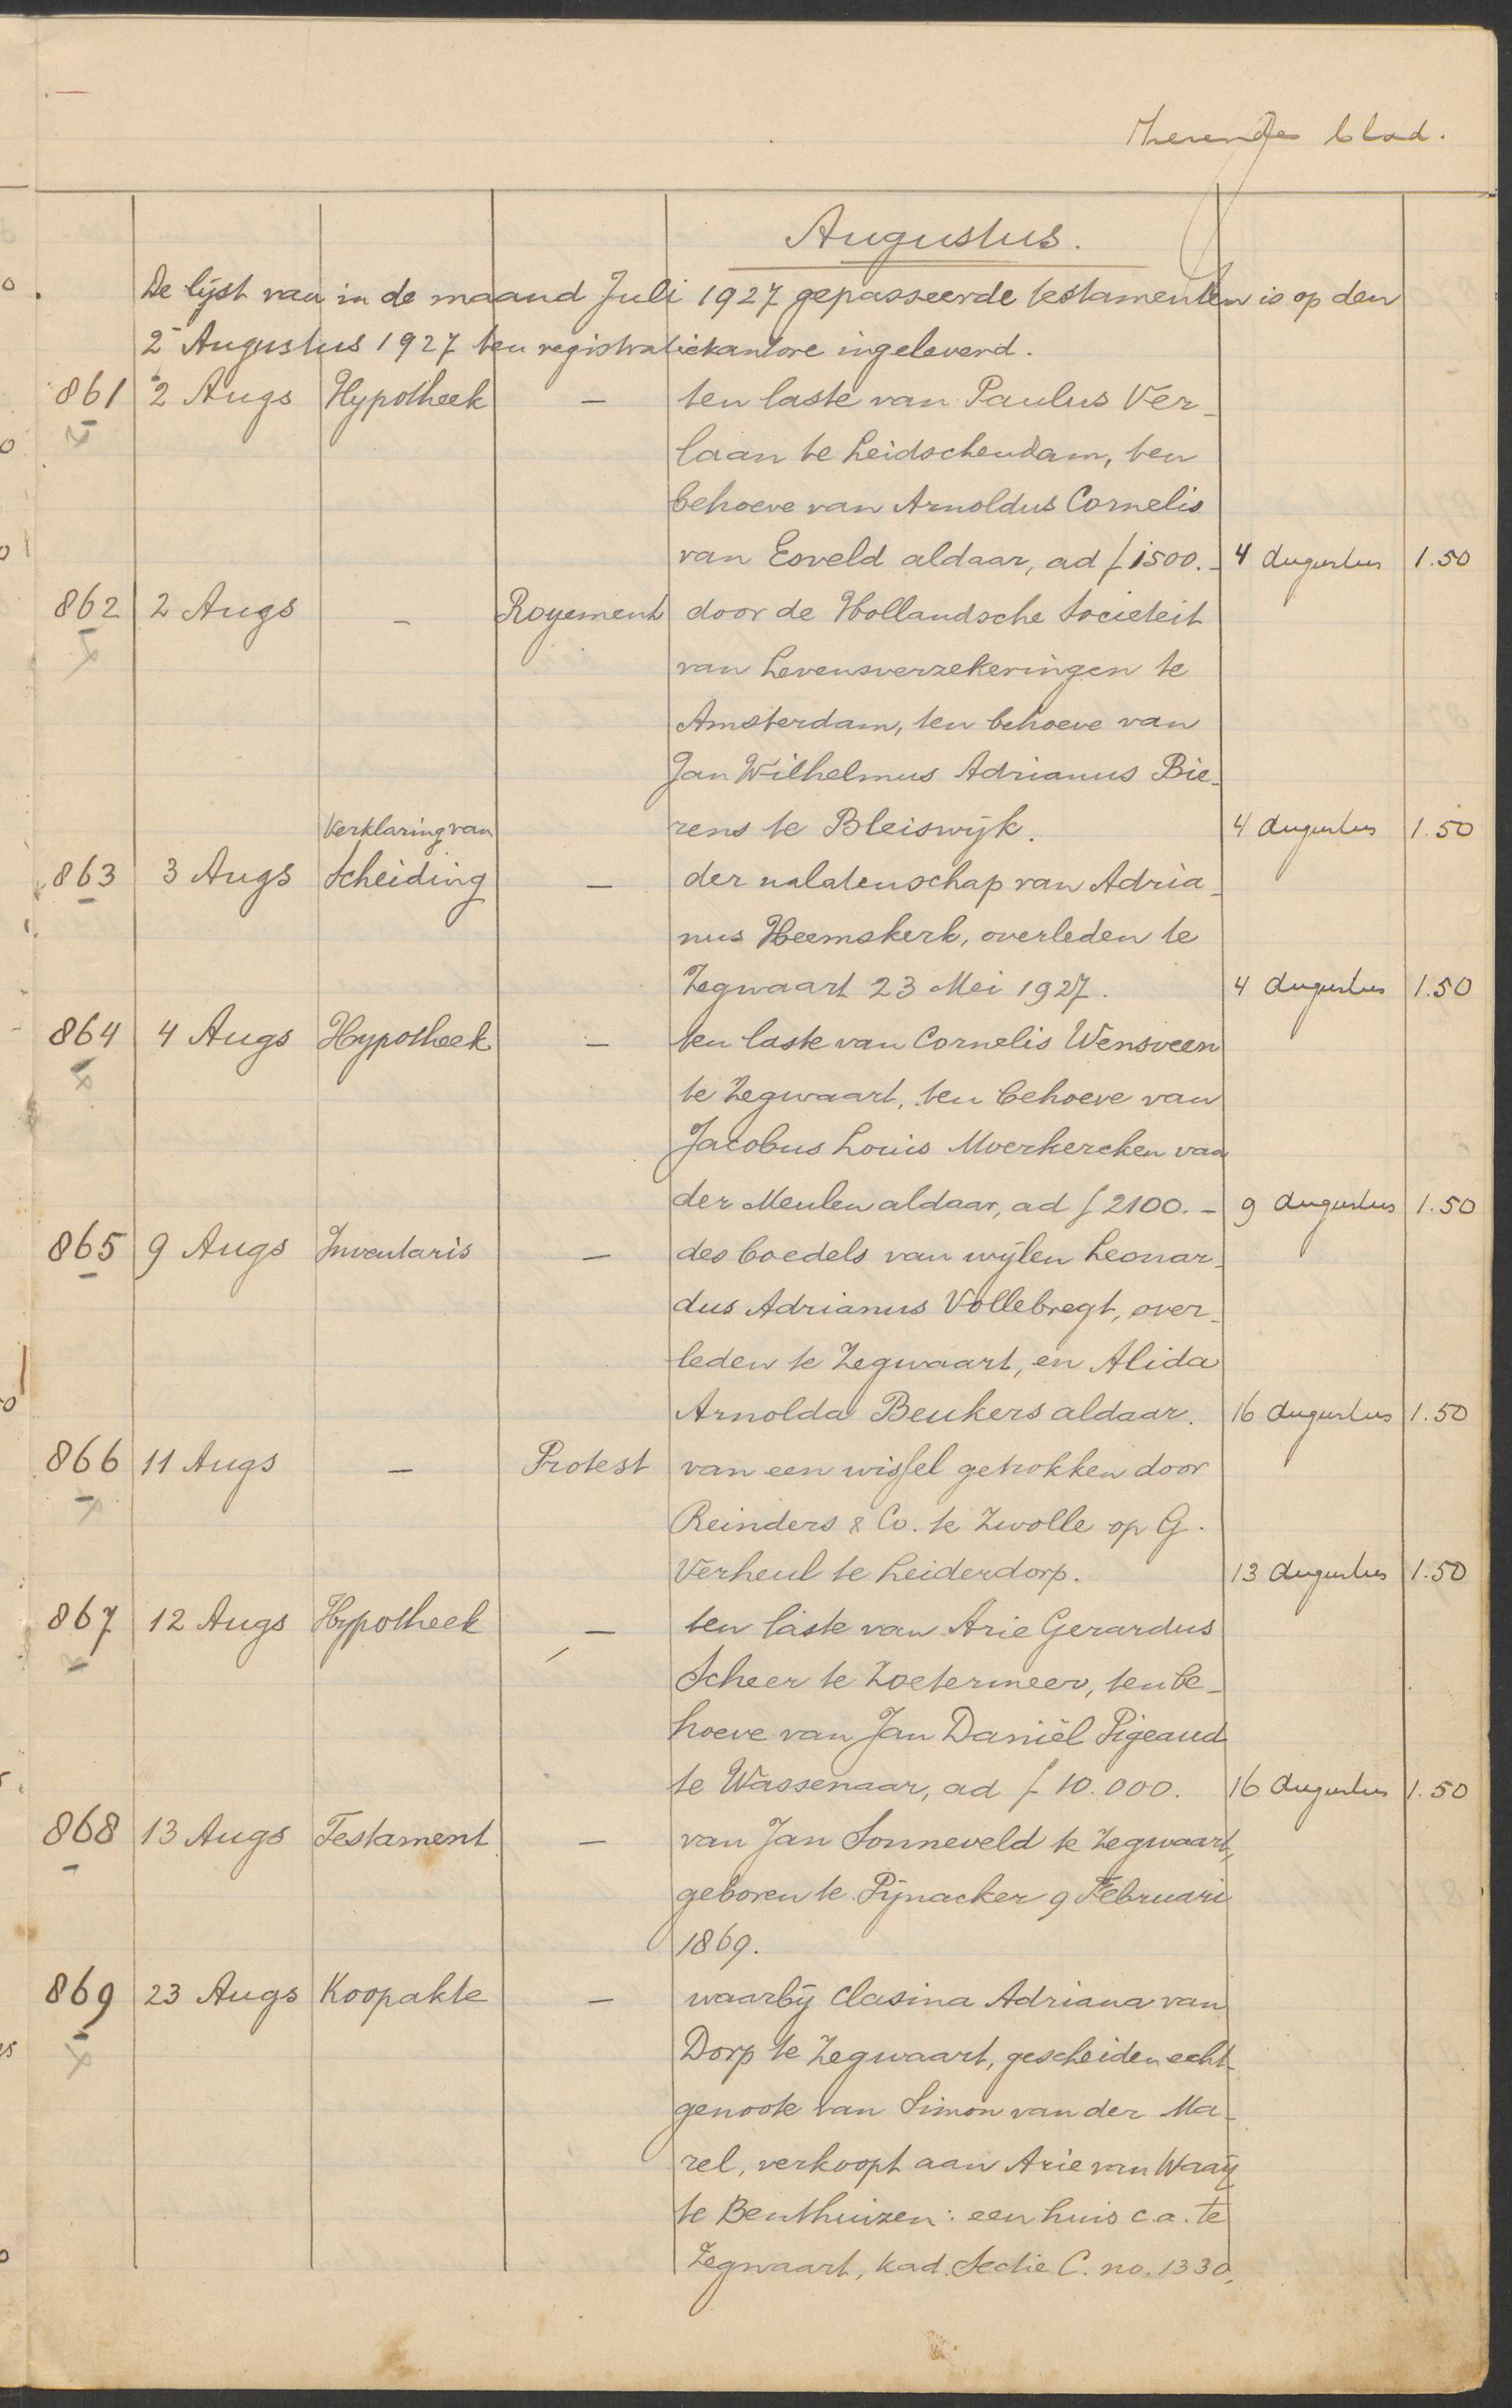 blad.
Augustus.
De lijst van in de maand Juli 1927 gepasseerde testamenten is op den
2 Augustus 1927 ten registratiekantore ingeleverd.
861 2 Augs Hypotheek — ten laste van Paulus Ver-
laan te Leidschendam, ten
behoeve van Arnoldus Cornelis
van Esveld aldaar, ad ƒ 1500.- 4 Augustus 1.50
862 2 Augs — Royement door de Hollandsche Societeit
van Levensverzekeringen te
Amsterdam, ten behoeve van
Jan Wilhelmus Adrianus Bie-
rens te Bleiswijk. 4 Augustus 1.50
Verklaring van
863 3 Augs Scheiding — der nalatenschap van Adria-
nus Heemskerk, overleden te
Zegwaart 23 Mei 1927. 4 Augustus 1.50
864 4 Augs Hypotheek — ten laste van Cornelis Wensveen
te Zegwaart, ten behoeve van
Jacobus Louis Moerkercken van
der Meulen aldaar, ad ƒ 2100.- 9 Augustus 1.50
865 9 Augs Inventaris — des boedels van wijlen Leonar-
dus Adrianus Vollebregt, over-
leden te Zegwaart, en Alida
Arnolda Beukers aldaar. 16 Augustus 1.50
866 11 Augs — Protest van een wissel getrokken door
Reinders & Co. te Zwolle op G.
Verheul te Leiderdorp. 13 Augustus 1.50
867 12 Augs Hypotheek — ten laste van Arie Gerardus
Scheer te Zoetermeer, ten be-
hoeve van Jan Daniël Pigeaud
te Wassenaar, ad ƒ 10.000. 16 Augustus 1.50
868 13 Augs Testament — van Jan Sonneveld te Zegwaart,
geboren te Pijnacker 9 Februari
1869.
869 23 Augs Koopakte — waarbij Clasina Adriana van
Dorp te Zegwaart, gescheiden echt-
genoote van Simon van der Ma-
rel, verkoopt aan Arie van Waaij
te Benthuizen: een huis c.a. te
Zegwaart, kad. Sectie C. no. 1330,